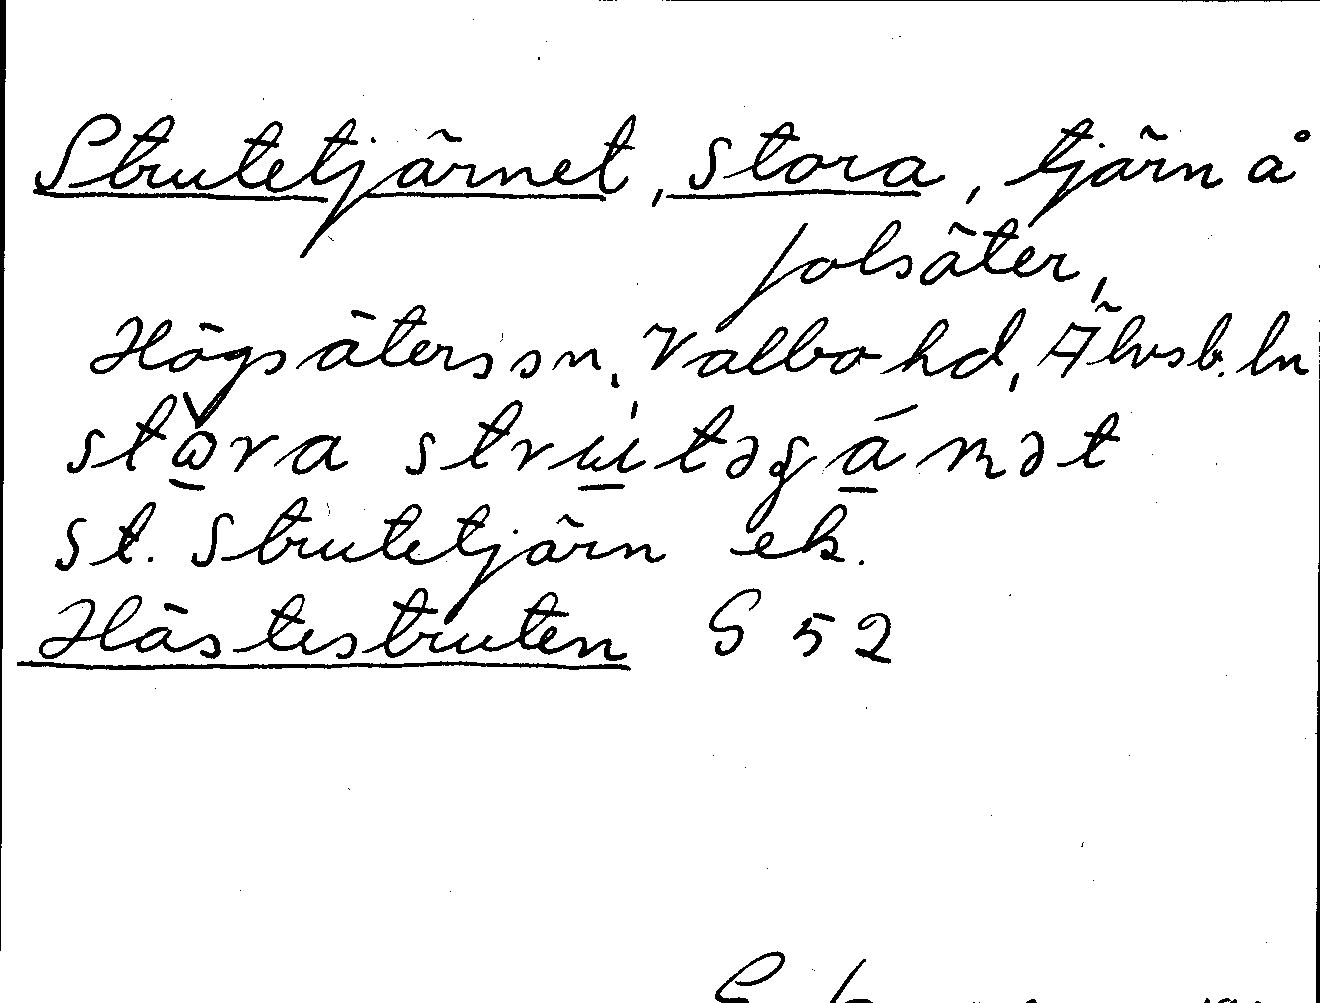 Strutetjärnet, Stora, tjärn å
Jolsäter,
Högsäters sn, Valbo hd, Älvsb. ln
St. Strutetjärn ek.
Hästestruten S 52